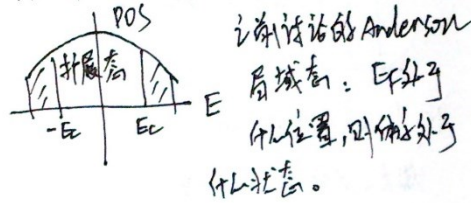 DOS
扩展态
E
-Ec
Ec
之前讨论的 Anderson
局域态：EF处于
什么位置，则体系处于
什么状态。